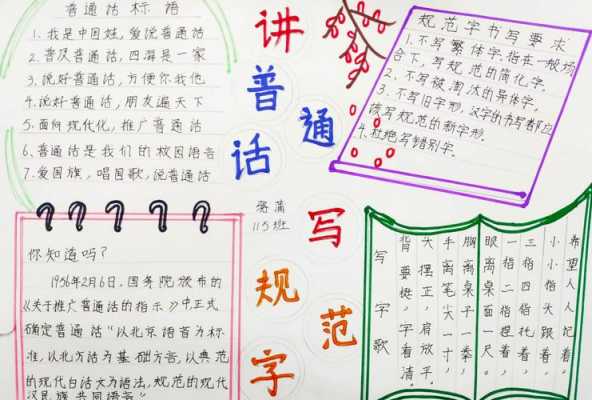 普通话标语
1. 我是中国娃,爱说普通话
2. 普及普通话,四海是一家
3. 说好普通话,方便你我他
4. 说好普通话,朋友遍天下
5. 面向现代化,推广普通话
6. 普通话是我们的校园语言
7. 爱国旗,唱国歌,说普通话
讲普通话
写规范字
115班
规范字书写要求
1. 不写繁体字.指在一般场
合下,写规范的简化字.
2. 不写被淘汰的异体字.
3. 不写旧字形,汉字的书写都应
该写规范的新字形.
4. 杜绝写错别字.
你知道吗?
1956年2月6日,国务院颁布的
《关于推广普通话的指示》中正式
确定普通话“以北京语音为标
准,以北方话为基础方言,以典范
的现代白话文为语法,规范的现代
汉民族共同语言”
写字歌
背要挺,字看清。
头摆正,肩放平,
手离笔尖一寸,
胸离桌子一拳,
眼离桌面一尺。
一指二指捏着,
三指四指托着,
小小指头跟着,
希望人人记着。